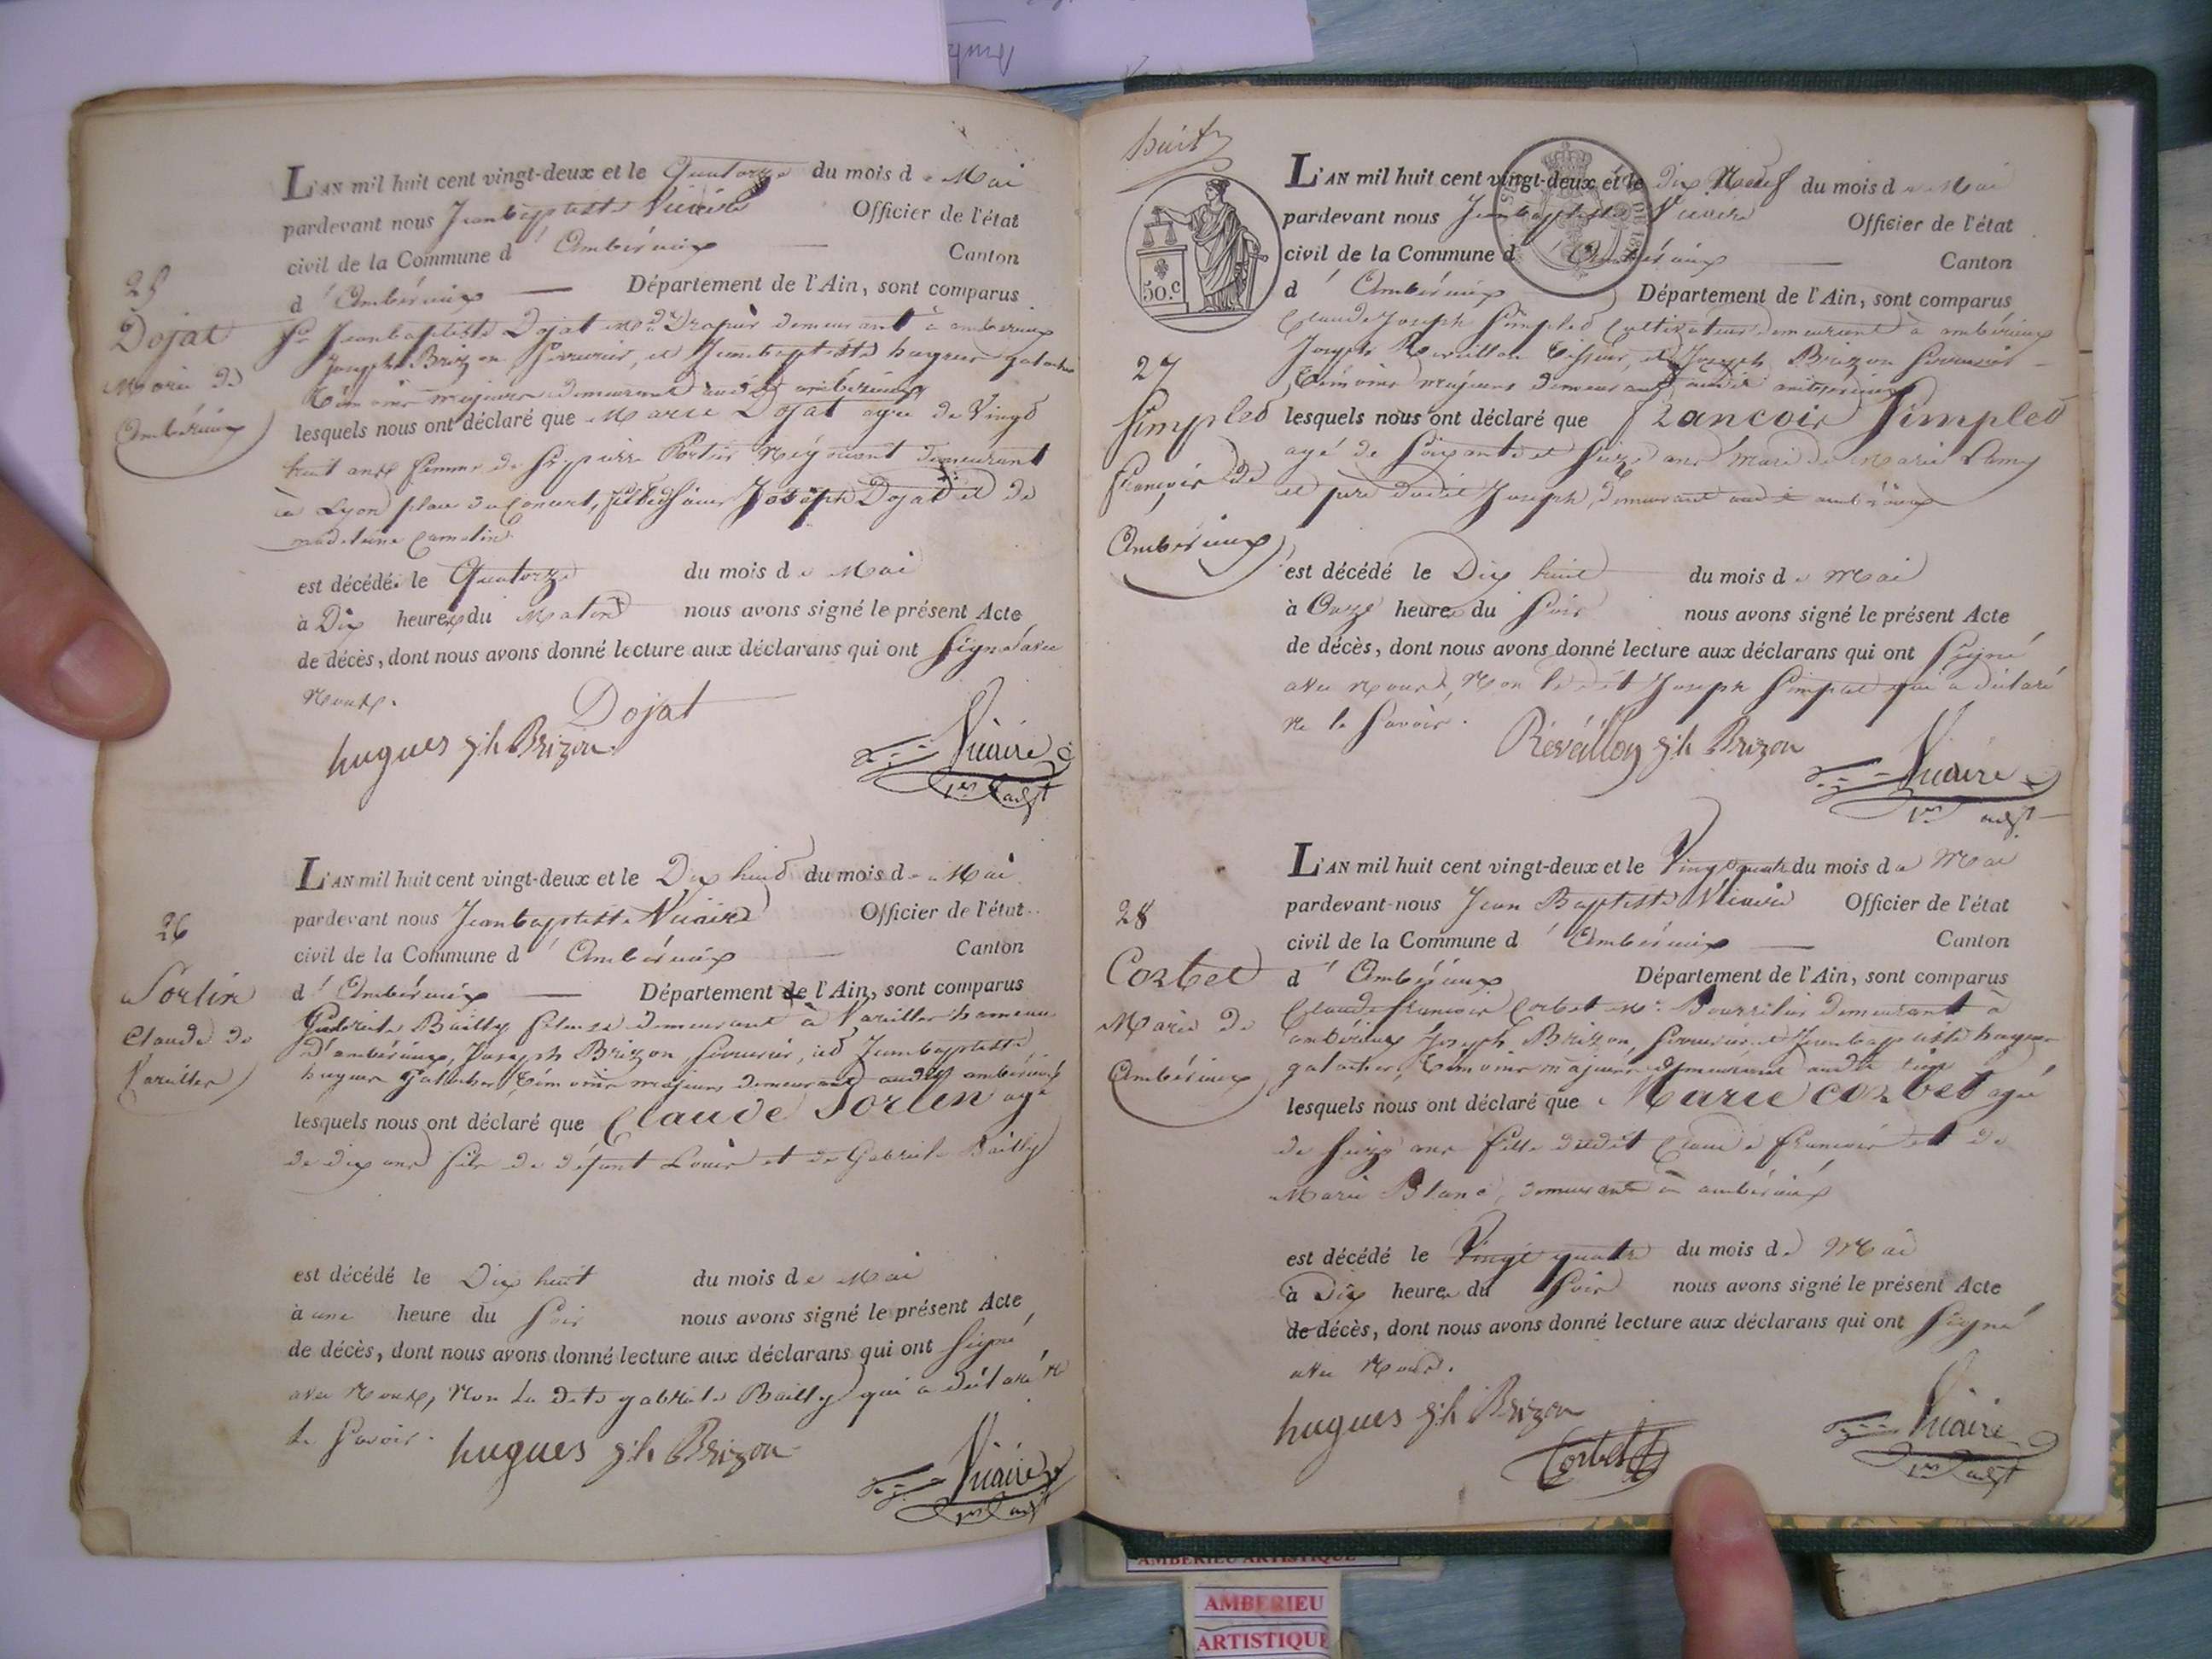 L'AN mil huit cent vingt-deux et le Quatorze du mois de Mai
pardevant nous Jeanbaptiste Vicaire Officier de l'état
civil de la Commune d' Ambérieux Canton
d' Ambérieux Département de l'Ain, sont comparus
25
Dojat
Marie de
Ambérieux
Sr Jeanbaptiste Dojat Md Drapier demeurant à ambérieux
Joseph Brizon Serrurier, et Jeanbaptiste hugues galocher
témoins majeurs demeurant audit ambérieux
lesquels nous ont déclaré que Marie Dojat agée de Vingt
huit ans femme de Sr pierre Portier Négociant demeurant
à Lyon place du Concert, fille de sieur Joseph Dojat et de
madeleine Cametin
est décédée le Quatorze du mois de Mai
à Dix heures du Matin nous avons signé le présent Acte
de décès, dont nous avons donné lecture aux déclarans qui ont Signé avec
Nous.
Dojat
hugues jh Brizon
Vicaire
1er adjt
L'AN mil huit cent vingt-deux et le Dix huit du mois de Mai
pardevant nous Jeanbaptiste Vicaire Officier de l'état
civil de la Commune d' Ambérieux Canton
d' Ambérieux Département de l'Ain, sont comparus
26
Sorlin
Claude de
Vareilles
Gabriele Bailly fileuse demeurant à Vareilles hameau
d'ambérieux, Joseph Brizon, Serrurier, et Jeanbaptiste
hugues galocher, témoins majeurs demeurant audit ambérieux
lesquels nous ont déclaré que Claude Sorlin agé
de dix ans fils de défunt Louis et de Gabriele Bailly
est décédé le Dix huit du mois de Mai
à une heure du Soir nous avons signé le présent Acte
de décès, dont nous avons donné lecture aux déclarans qui ont Signé
avec Nous, Non La dite gabriele Bailly qui a déclaré ne
le Savoir.
hugues jh Brizon
Vicaire
1er adjt
huit
50.c
L'AN mil huit cent vingt-deux et le dix Neuf du mois de Mai
pardevant nous Jeanbaptiste Vicaire Officier de l'état
civil de la Commune d' Ambérieux Canton
d' Ambérieux Département de l'Ain, sont comparus
27
Simpled
François de
Ambérieux
Claude Joseph Simpled Cultivateur demeurant à ambérieux
Joseph Revaillon tisseur, et Joseph Brizon Serrurier
témoins majeurs demeurant audit ambérieux
lesquels nous ont déclaré que Francois Simpled
agé de Soixante et Seize ans Mari de Marie Lamy
et père dudit Joseph, demeurant audit ambérieux
est décédé le Dix huit du mois de Mai
à Onze heures du Soir nous avons signé le présent Acte
de décès, dont nous avons donné lecture aux déclarans qui ont Signé
avec Nous, Non le dit Joseph Simpled qui a déclaré
Ne le Savoir.
Révaillon jh Brizon
Vicaire
1er adjt
L'AN mil huit cent vingt-deux et le Vingt quatre du mois de Mai
pardevant-nous Jean Baptiste Vicaire Officier de l'état
civil de la Commune d' Ambérieux Canton
d' Ambérieux Département de l'Ain, sont comparus
28
Corbet
Marie de
Ambérieux
Claude francois Corbet Md Bourrelier demeurant à
ambérieux Joseph Brizon, Serrurier et Jeanbaptiste hugues
galocher, témoins majeurs demeurant audit lieu
lesquels nous ont déclaré que Marie corbet agée
de Seize ans fille dudit Claude francois et de
Marie Blanc, demeurante à ambérieux
est décédé le Vingt quatre du mois de Mai
à Dix heures du Soir nous avons signé le présent Acte
de décès, dont nous avons donné lecture aux déclarans qui ont Signé
avec Nous.
hugues jh Brizon
Corbet
Vicaire
1er adjt
AMBERIEU ARTISTIQUE
AMBERIEU
ARTISTIQUE